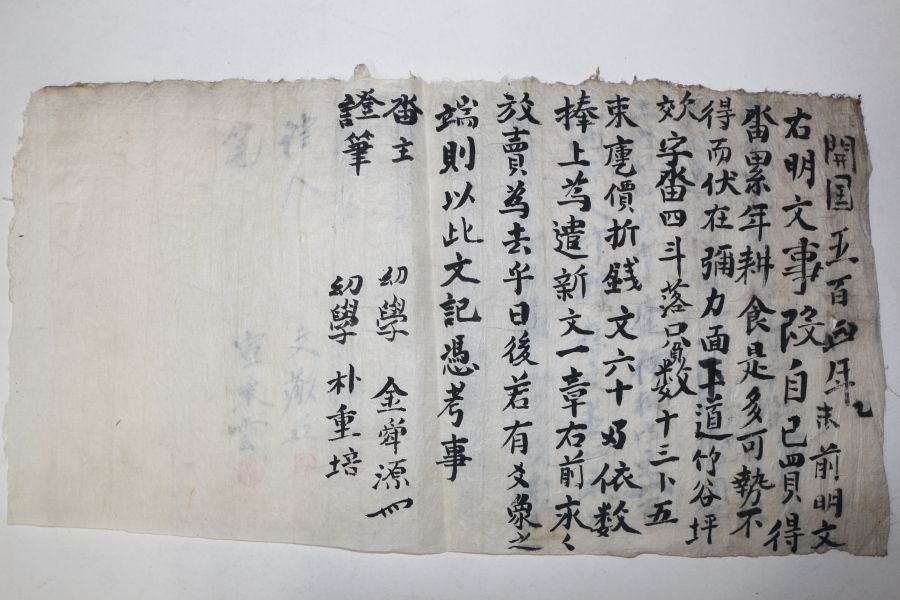 開国五百四年乙未 前明文
右明文事段自己買得
畓累年耕食是多可勢不
得而伏在彌力面下道竹谷坪
效字畓四斗落只負數十三卜五
束庫價折錢文六十両依數
捧上為遣新文一章右前永々
放賣為去乎日後若有爻象之
端則以此文記憑考事
畓主 幼學 金舜源
證筆 幼學 朴重培